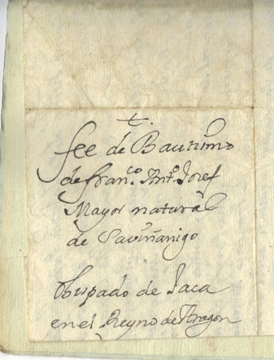 t.
fee de Bautismo
de Fran.co Ant.o Josef
Mayor natural
de Saviñanigo
Obispado de Jaca
en el Reyno de Aragon